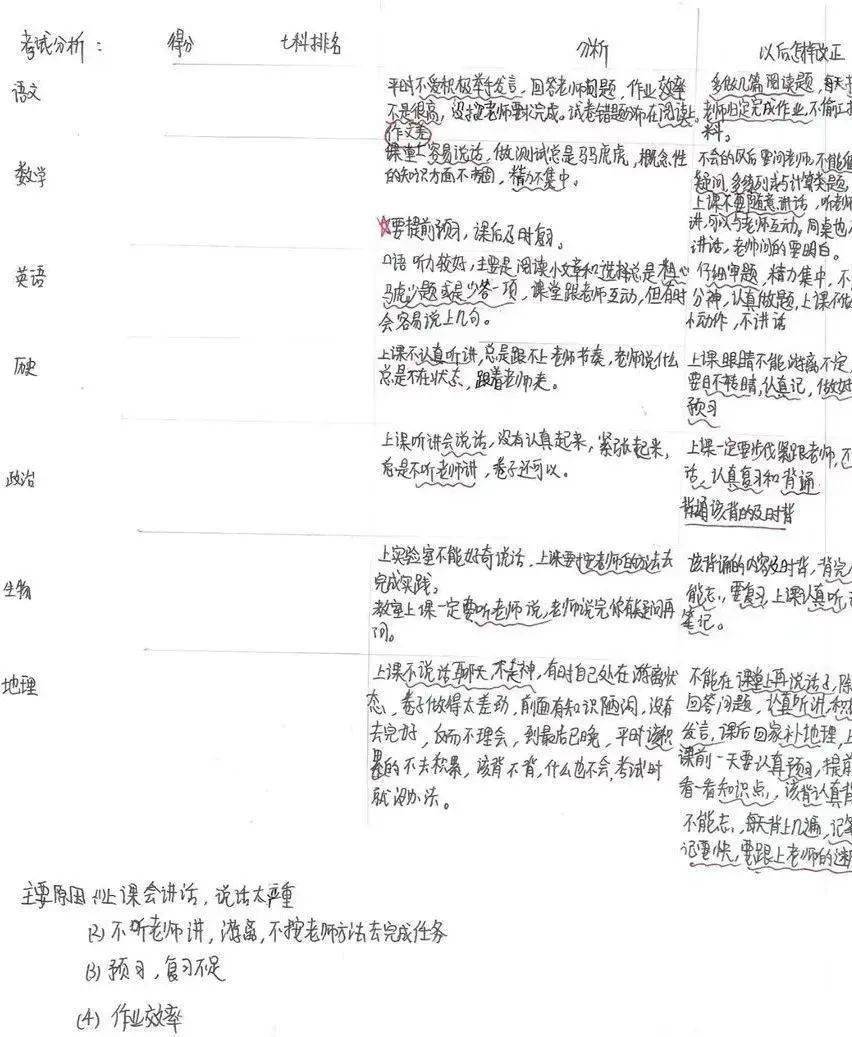 考试分析： 得分 七科排名 分析 以后怎样改正
语文
平时不爱积极举手发言，回答老师问题，作业效率
不是很高，没按老师要求完成。试卷错题分布在阅读上。
作文差
多做几篇阅读题，每天
老师归定完成作业，不偷工
料。
数学
课堂上容易说话，做测试总是马马虎虎，概念性
的知识方面不牢固，精力不集中。
☆要提前预习，课后及时复习。
不会的以后要问老师，不能
疑问，多练列式与计算类题，
上课不要随意讲话，听老师
讲，可以与老师互动。同桌也不
讲话，老师问的要明白。
英语
口语听力较好，主要是阅读小文章和选择总是粗心
马虎少题或是少答一项，课堂跟老师互动，但有时
会容易说上几句。
仔细审题，精力集中，不
分神，认真做题，上课不做
小动作，不讲话
历史
上课不认真听讲，总是跟不上老师节奏，老师说什么
总是不在状态，跟着老师走。
上课眼睛不能游离不定，
要目不转睛，认真记，做好
预习
政治
上课听讲会说话，没有认真起来，紧张起来，
总是不听老师讲，卷子还可以。
上课一定要步伐紧跟老师，不
话，认真复习和背诵
背诵该背的及时背
生物
上实验室不能好奇说话，上课要按老师的方法去
完成实践。
教室上课一定要听老师说，老师说完你有疑问再
问。
该背诵的内容及时背，背完
能忘，要复习，上课认真听
笔记。
地理
上课不说话聊天，不走神，有时自己处在游离状
态，卷子做得太差劲，前面有知识漏洞，没有
去完好，反而不理会，到最后已晚，平时该积
累的不去积累，该背不背，什么也不会，考试时
就没办法。
不能在课堂上再说话了，除
回答问题，认真听讲，积极
发言，课后回家补地理，上
课前一天要认真预习，提前
看一看知识点，该背认真背
不能忘，每天背上几遍，记笔
记要快，要跟上老师的速度
主要原因 (1)上课会讲话，说话太严重
(2)不听老师讲，游离，不按老师方法去完成任务
(3)预习，复习不足
(4)作业效率